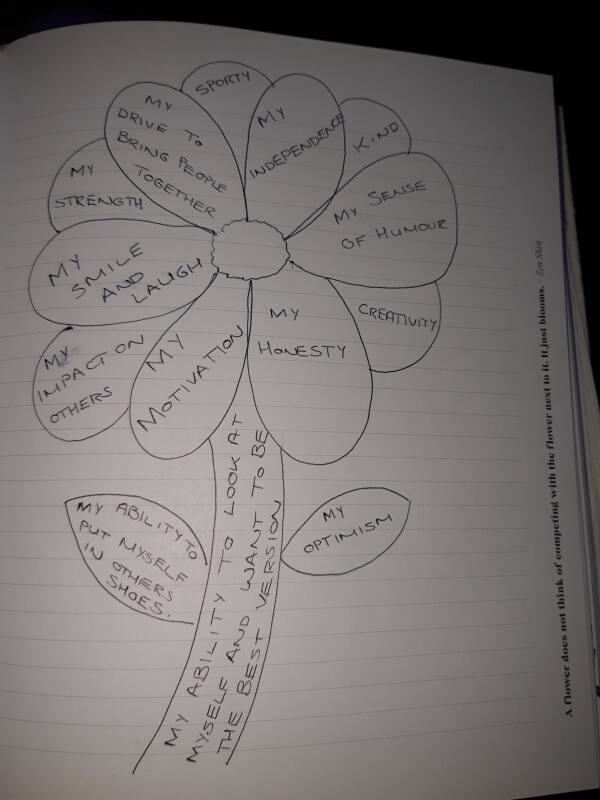 SPORTY
MY
DRIVE TO
BRING PEOPLE
TOGETHER
MY
INDEPENDENCE
KIND
MY
STRENGTH
MY SENSE
OF HUMOUR
MY
SMILE
AND
LAUGH
CREATIVITY
MY
HONESTY
MY
MOTIVATION
MY
IMPACT ON
OTHERS
MY ABILITY TO
PUT MYSELF
IN OTHERS
SHOES.
MY
OPTIMISM
MY ABILITY TO LOOK AT
MYSELF AND WANT TO BE
THE BEST VERSION
A flower does not think of competing with the flower next to it. It just blooms. - Zen Shin